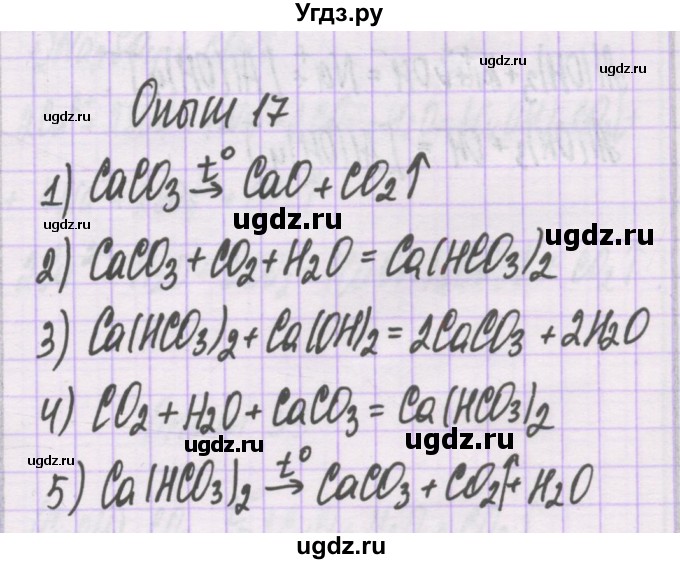 Угдз.ру
ugdz.ru ugdz.ru ugdz.ru
Опыт 17
1) CaCO₃ t°→ CaO + CO₂↑
ugdz.ru ugdz.ru ugdz.ru
2) CaCO₃ + CO₂ + H₂O = Ca(HCO₃)₂
3) Ca(HCO₃)₂ + Ca(OH)₂ = 2CaCO₃ + 2H₂O
ugdz.ru ugdz.ru
4) CO₂ + H₂O + CaCO₃ = Ca(HCO₃)₂
ugdz.ru ugdz.ru ugdz.ru
5) Ca(HCO₃)₂ t°→ CaCO₃ + CO₂↑ + H₂O
ugdz.ru ugdz.ru ugdz.ru
ugdz.ru